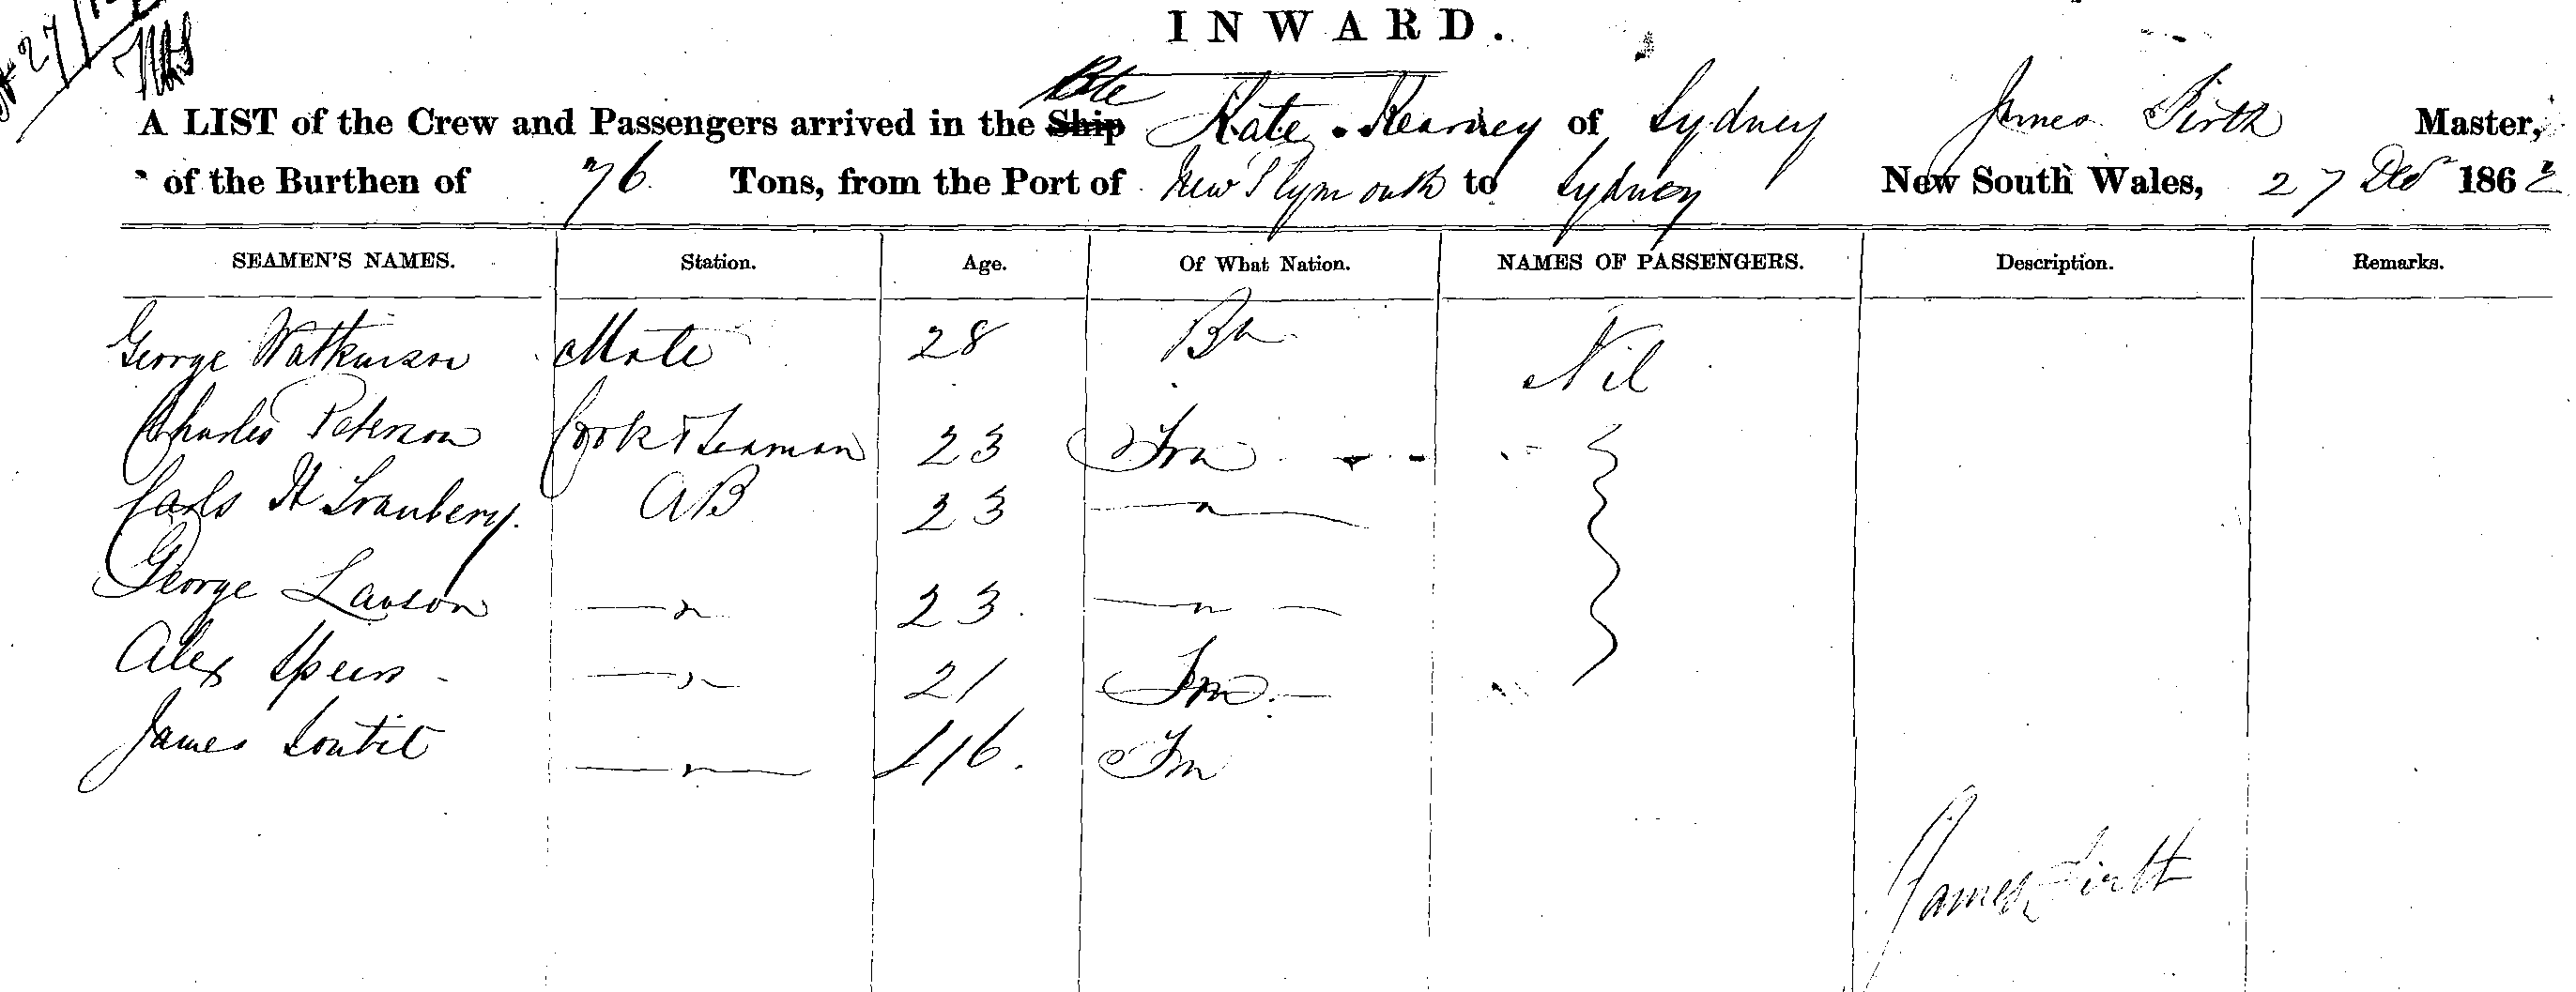 27/12
INWARD.
A LIST of the Crew and Passengers arrived in the Ship Bte Kate Kearney of Sydney James Firth Master,
of the Burthen of 76 Tons, from the Port of New Plymouth to Sydney New South Wales, 27 Dec 1862
SEAMEN'S NAMES. Station. Age. Of What Nation. NAMES OF PASSENGERS. Description. Remarks.
George Watkinson Mate 28 Br Nil
Charles Paterson Cook & Seaman 23
Carls H AB 23 "
George Lawson " 23 "
Alex Speirs " 21
James Loutit " 16
James Firth